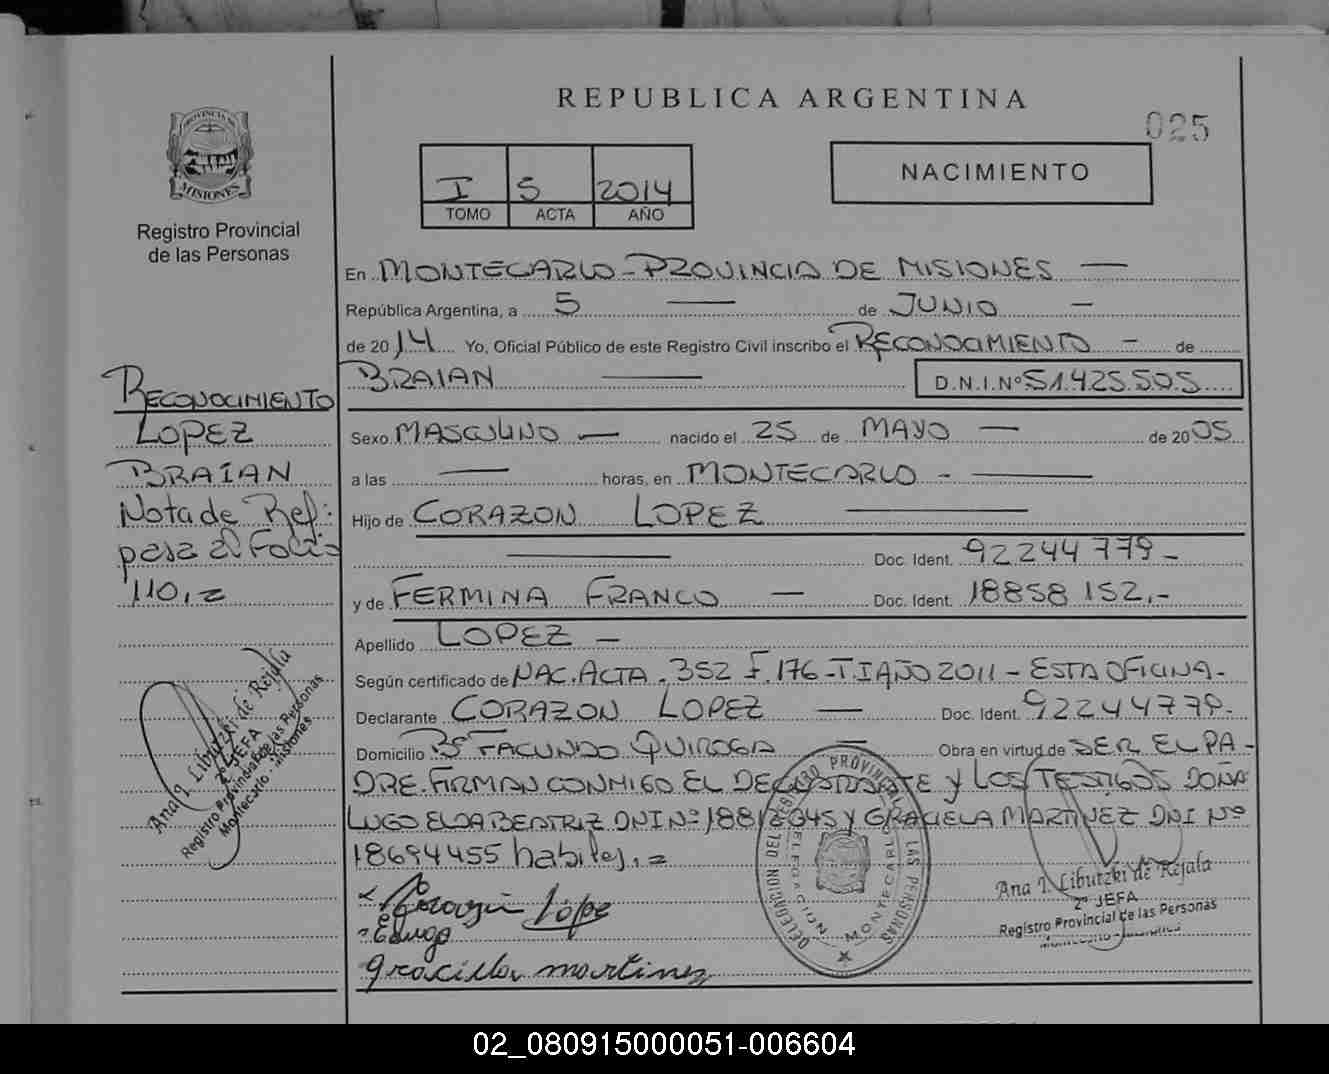 REPUBLICA ARGENTINA
025
PROVINCIA DE
MISIONES
Registro Provincial
de las Personas
I 5 2014
TOMO ACTA AÑO
NACIMIENTO
En MONTECARLO - PROVINCIA DE MISIONES —
República Argentina, a 5 — de JUNIO —
de 2014 Yo, Oficial Público de este Registro Civil inscribo el RECONOCIMIENTO — de
BRAIAN — D.N.I.Nº 51.425.505
Sexo MASCULINO — nacido el 25 de MAYO — de 2005
a las — horas, en MONTECARLO - —
Hijo de CORAZON LOPEZ —
— Doc. Ident. 92244779 -
y de FERMINA FRANCO — Doc. Ident. 18858152.-
Apellido LOPEZ —
Según certificado de NAC. ACTA. 352 F. 176 - T. I AÑO 2011 - ESTA OFICINA -
Declarante CORAZON LOPEZ — Doc. Ident. 92244779-
Domicilio Bº FACUNDO QUIROGA — Obra en virtud de SER EL PA-
DRE. FIRMAN CONMIGO EL DECLARANTE Y LOS TESTIGOS DOÑA
LUGO ELDA BEATRIZ DNI Nº y GRACIELA MARTINEZ DNI Nº
18694455 habiles. =
RECONOCIMIENTO
LOPEZ
BRAIAN
Nota de Ref:
pasa al Folio
110. =
Ana I. Libutzki de Rejala
2º JEFA
Registro Provincial de las Personas
Montecarlo - Misiones
Corazon López
gracilla martinez
DELEGACION DEL REGISTRO PROVINCIAL DE LAS PERSONAS
DELEGACION MONTECARLO
Ana I. Libutzki de Rejala
2º JEFA
Registro Provincial de las Personas
Montecarlo - Misiones
02_080915000051-006604